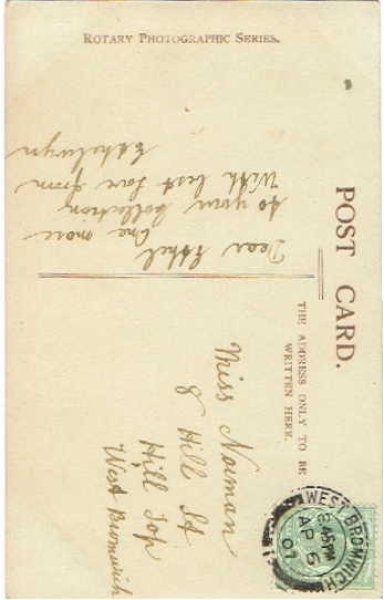 ROTARY PHOTOGRAPHIC SERIES.
POST CARD.
THE ADDRESS ONLY TO BE
WRITTEN HERE.
Dear Ethel
One more
to your Collection
With best love from
Ethelwyn
Miss Noiman
8 Hill St
Hill Top
West Bromwich
WEST BROMWICH
8.45PM
AP 6
07